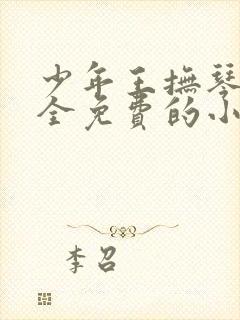 少年王撫琴
全免費的小
李召